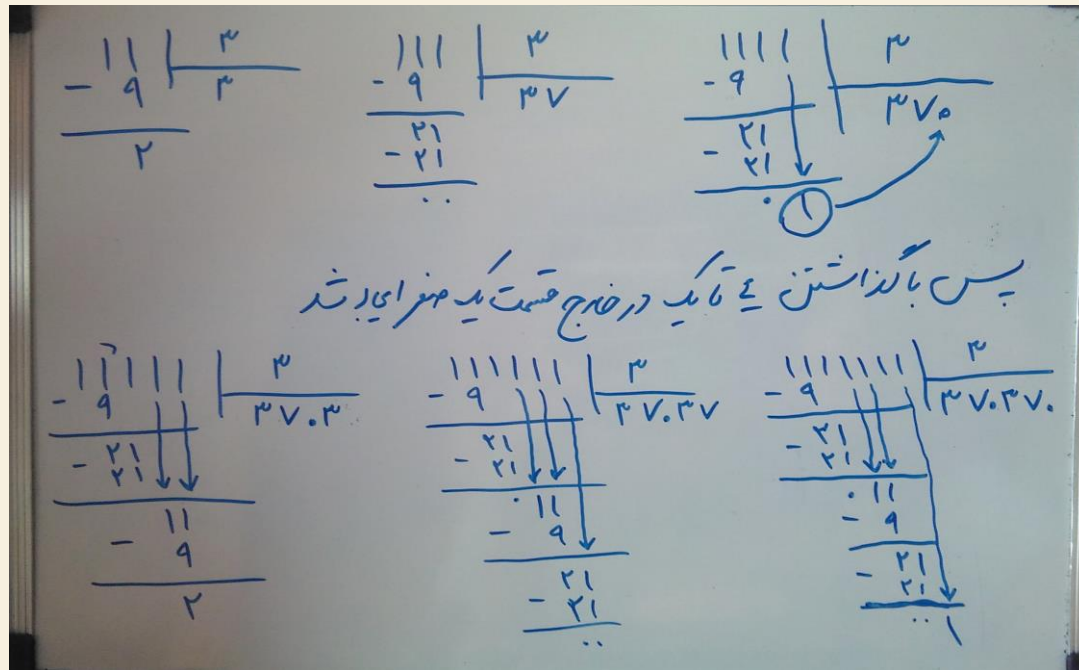 ۱۱ | ۳
- ۹ ۳
۲
۱۱۱ | ۳
- ۹ ۳۷
۲۱
- ۲۱
۰۰
۱۱۱۱ | ۳
- ۹ ۳۷۰
۲۱
- ۲۱
۰۱
پس با گذاشتن ٤ تا یک در خارج قسمت یک صفر ایجاد شد
۱۱۱۱۱ | ۳
- ۹ ۳۷۰۳
۲۱
- ۲۱
۱۱
- ۹
۲
۱۱۱۱۱۱ | ۳
- ۹ ۳۷۰۳۷
۲۱
- ۲۱
۰۱۱
- ۹
۲۱
- ۲۱
۰۰
۱۱۱۱۱۱۱ | ۳
- ۹ ۳۷۰۳۷۰
۲۱
- ۲۱
۰۱۱
- ۹
۲۱
- ۲۱
۰۰۱